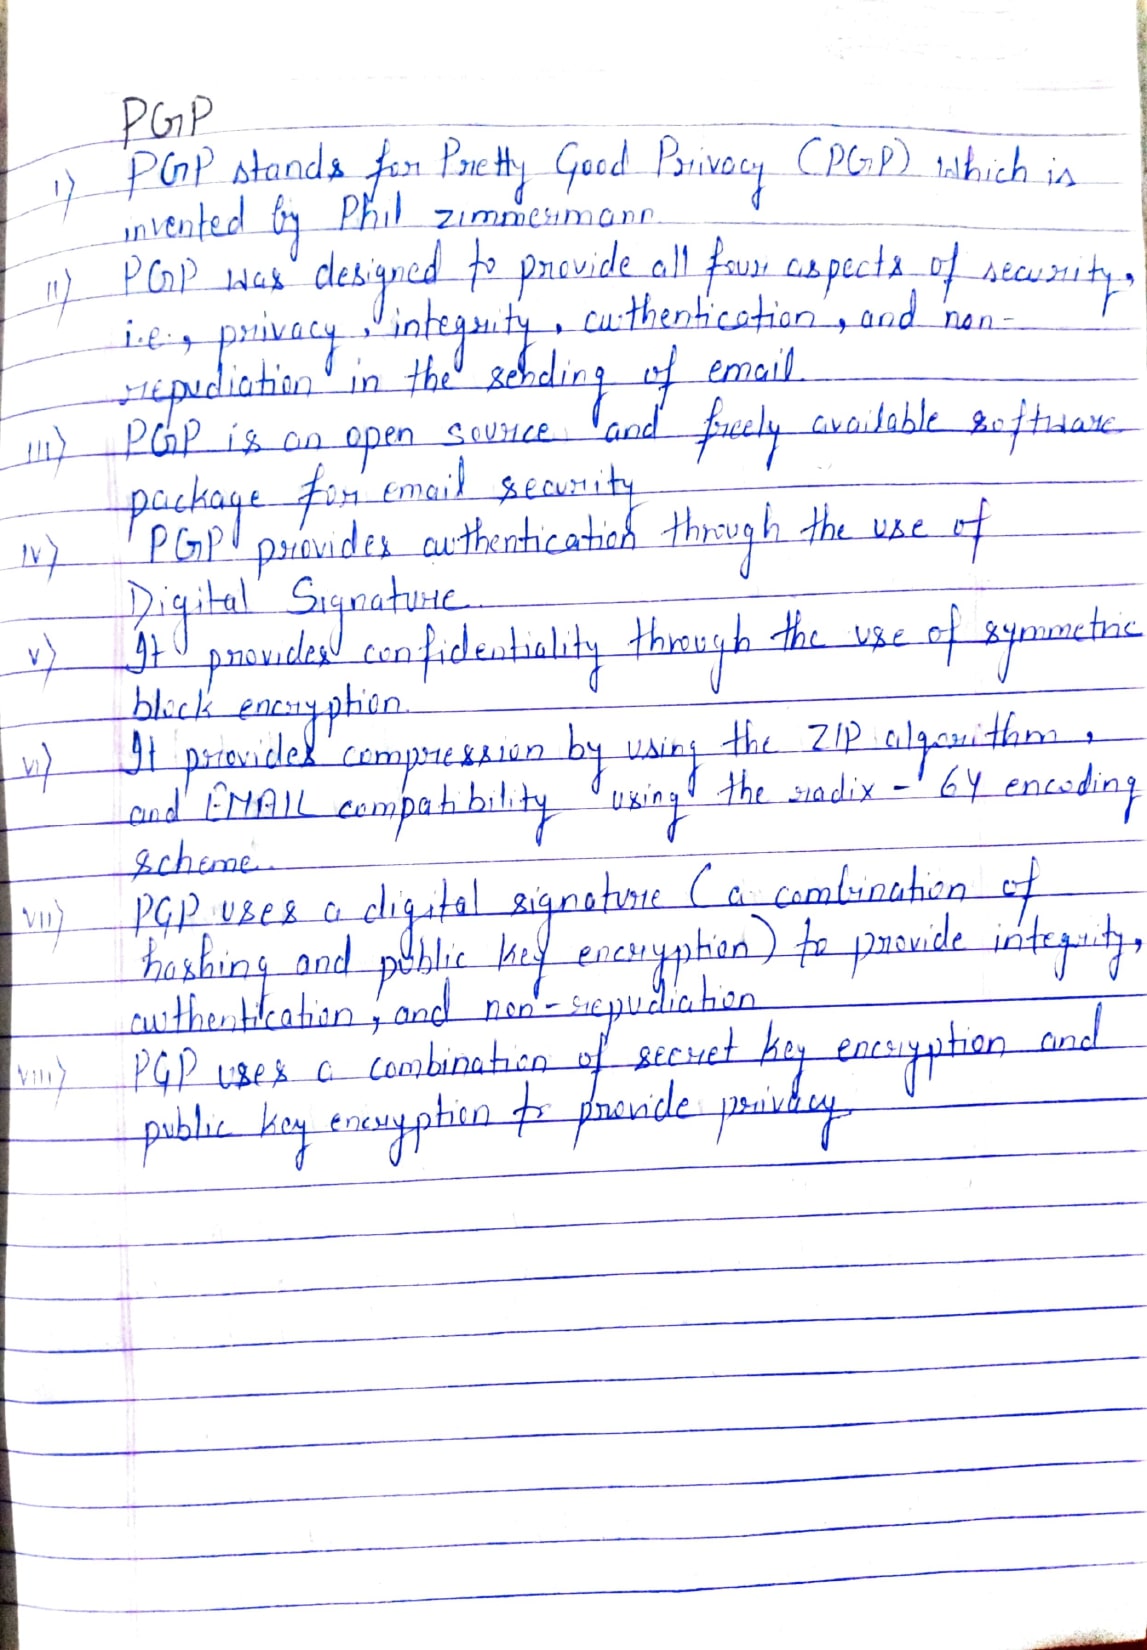 PGP
i) PGP stands for Pretty Good Privacy (PGP) which is
invented by Phil zimmermann.
ii) PGP was designed to provide all four aspects of security,
i.e., privacy, integrity, authentication, and non-
repudiation in the sending of email.
iii) PGP is an open source and freely available software
package for email security
iv) PGP provides authentication through the use of
Digital Signature.
v) It provides confidentiality through the use of symmetric
block encryption.
vi) It provides compression by using the ZIP algorithm,
and EMAIL compatibility using the radix - 64 encoding
scheme.
vii) PGP uses a digital signature (a combination of
hashing and public key encryption) to provide integrity,
authentication, and non-repudiation
viii) PGP uses a combination of secret key encryption and
public key encryption to provide privacy.